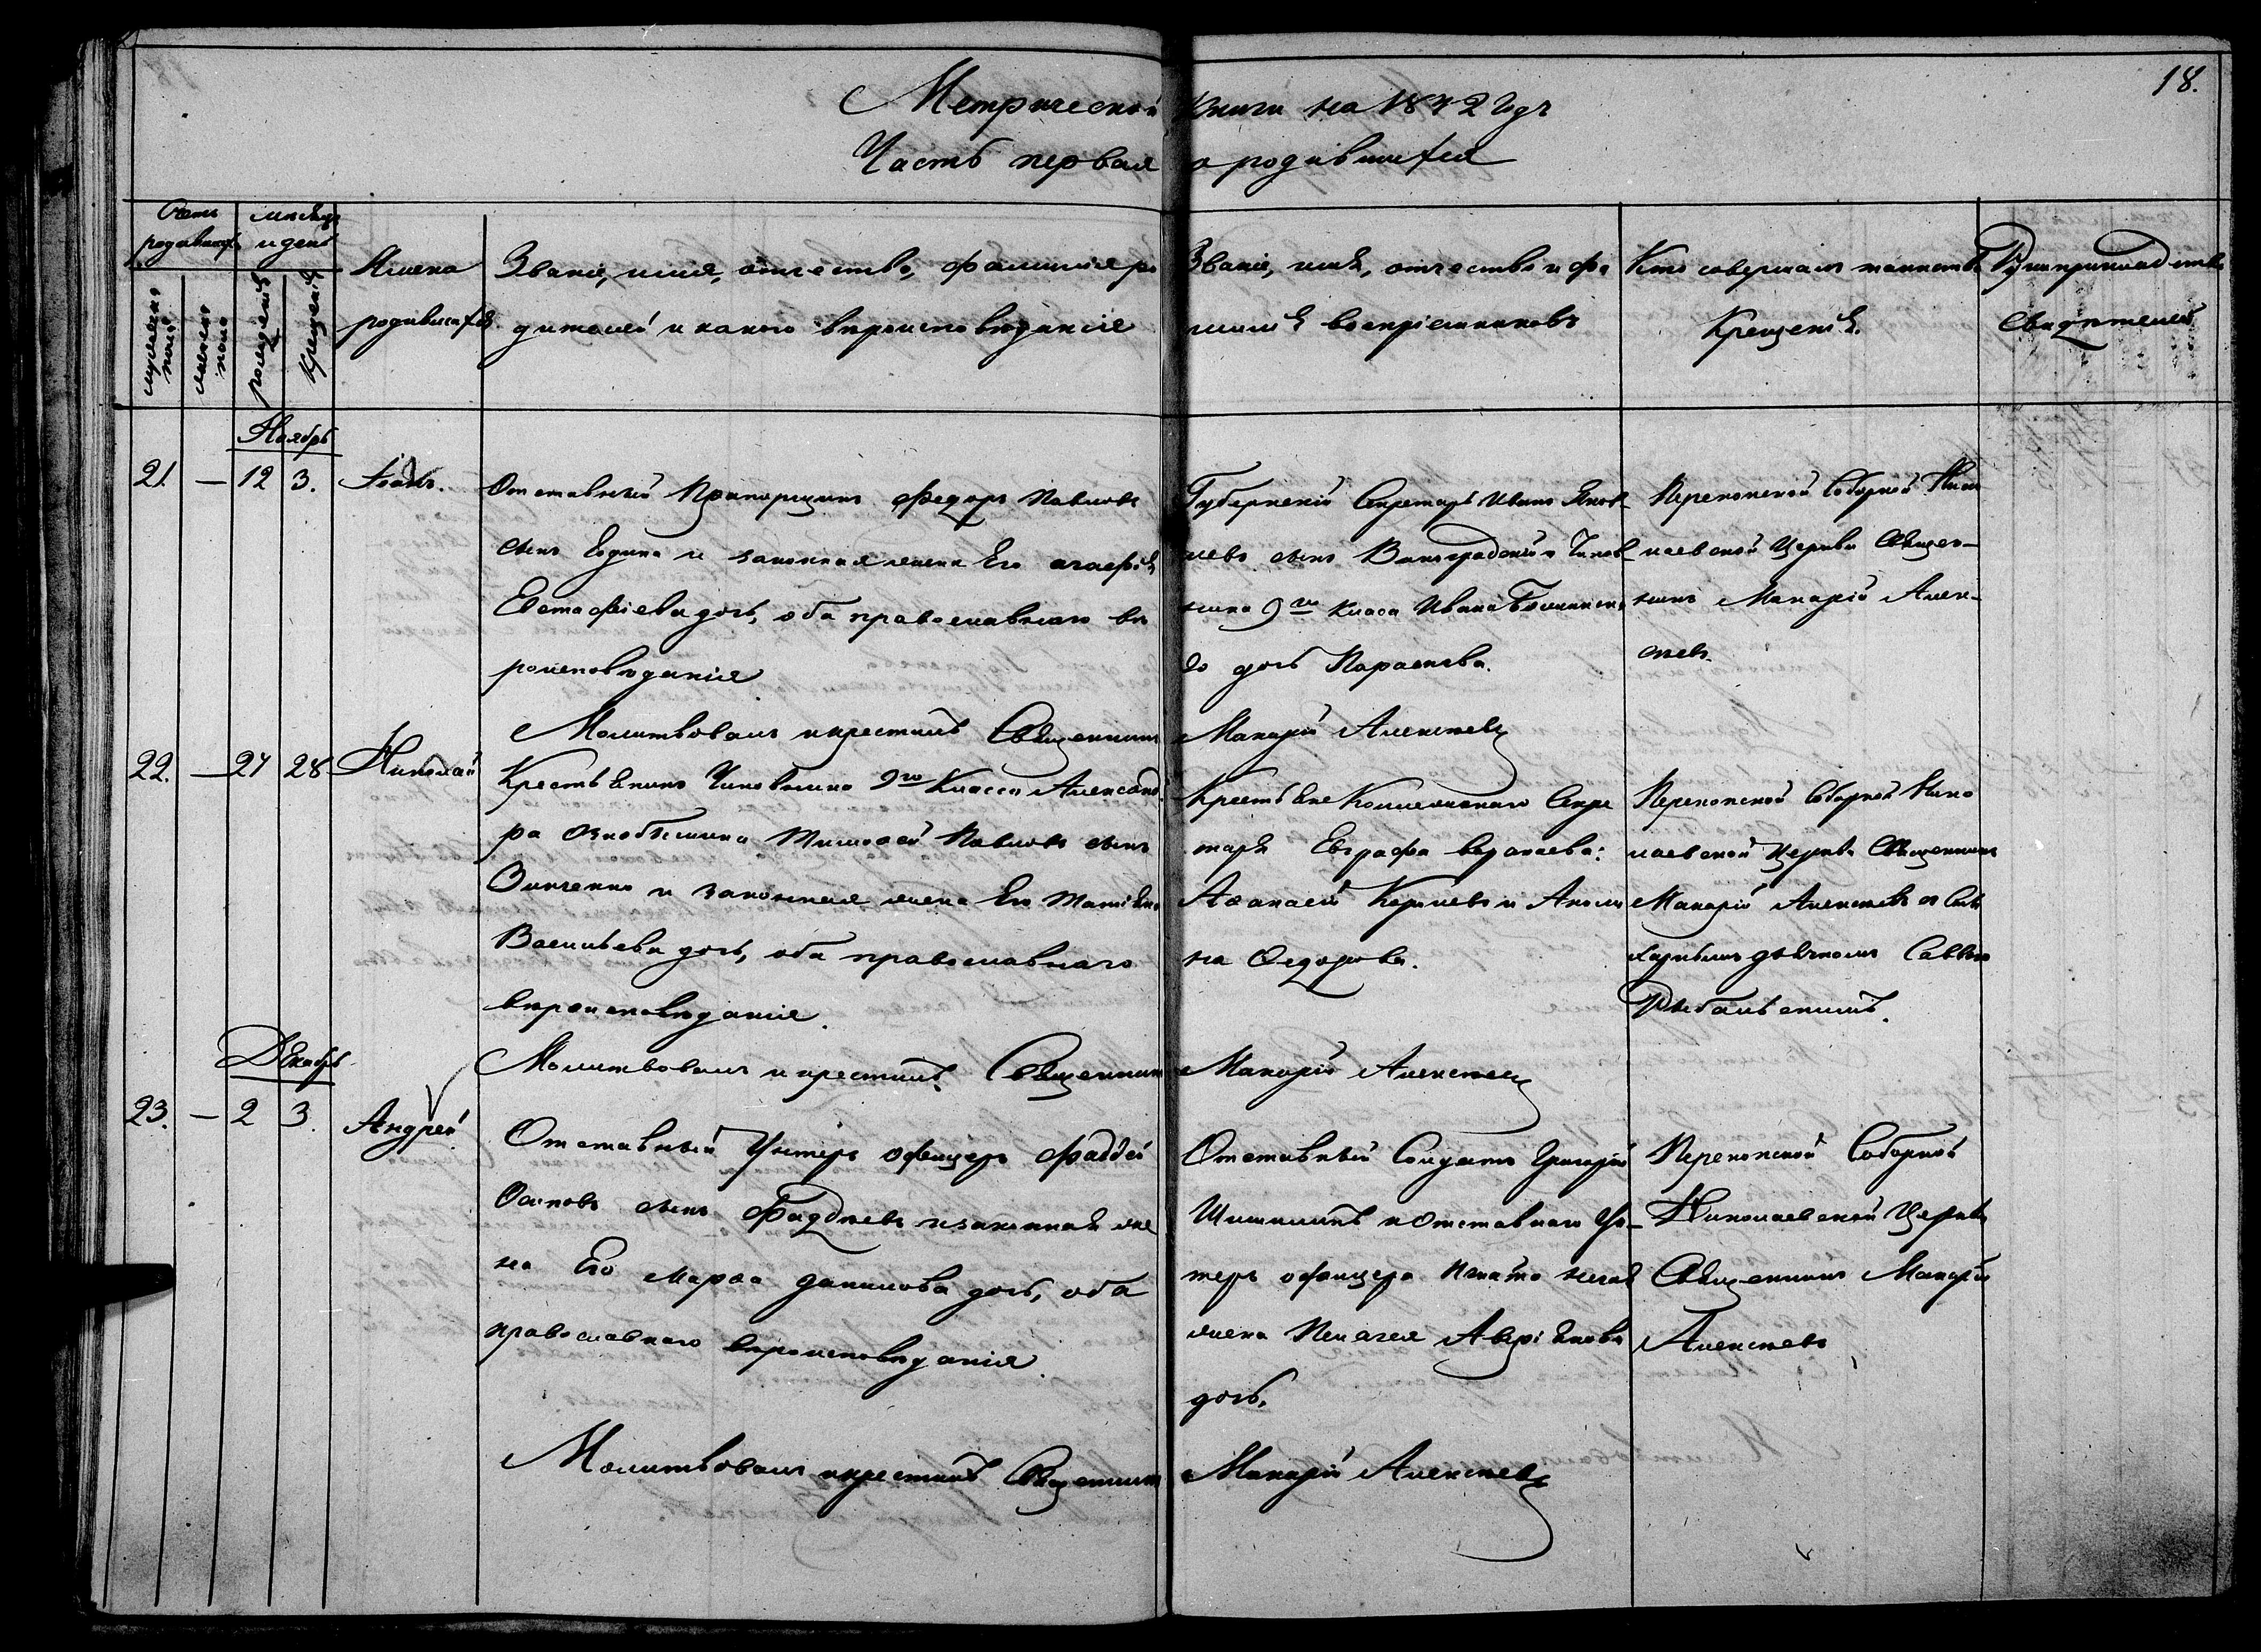 18.
Метрической книги на 1842 годъ
Часть первая о родившихся
Счетъ родившихся
мужеска пола
женска пола
месяцъ и день
рожденія
Крещенія
Имена
родившихся
Званіе, имя, отчество, фамилія ро
дителей и какого вероисповеданія
Званіе, имя, отчество и фа
милія воспріемниковъ
Кто совершалъ таинство
Крещенія.
Рукоприкладство
Свидетелей
Ноябрь
21. — 12 3. Іоаннъ.
Отставный Прапорщикъ Федоръ Павловъ
сынъ Година и законная жена Его Агафія
Евстафіева дочь, оба православнаго ве
роисповеданія
Губернскій Секретарь Иванъ Яков-
левъ сынъ Виноградскій и Чинов
ника 9го Класа Ивана
го дочь Параскева.
Перекопской Соборной Нико
лаевской Церкви Священ-
никъ Макарій Алек-
сеевъ.
Молитвовалъ и крестилъ Священникъ Макарій Алексеевъ
22. — 27 28 Николай
Крестьянинъ Чиновника 9го Класса Александ
ра Ознобишина Тимофей Павловъ сынъ
Зинченко и законная жена Его Татіяна
Васильева дочь, оба православнаго
вероисповеданія.
Крестьяне Коллежскаго Секре
таря Евграфа
Афанасій Карпевъ и Акили
на Федорова.
Перекопской Соборной Нико
лаевской Церкви Священникъ
Макарій Алексеевъ
дьячкомъ Саввою
Рыбальскимъ.
Молитвовалъ и крестилъ Священникъ Макарій Алексеевъ
Декабрь
23. — 2 3. Андрей
Отставный Унтеръ офицеръ Фаддей
Осиповъ сынъ Фаддеевъ и законная же
на Его Марфа Данилова дочь, оба
православнаго вероисповеданія.
Отставный Солдатъ Григорій
Шишкинъ и Отставнаго Ун-
теръ офицера Игнатія
жена Пелагея Авріянова
дочь.
Перекопской Соборной
Николаевской Церкви
Священникъ Макарій
Алексеевъ
Молитвовалъ и крестилъ Священникъ Макарій Алексеевъ